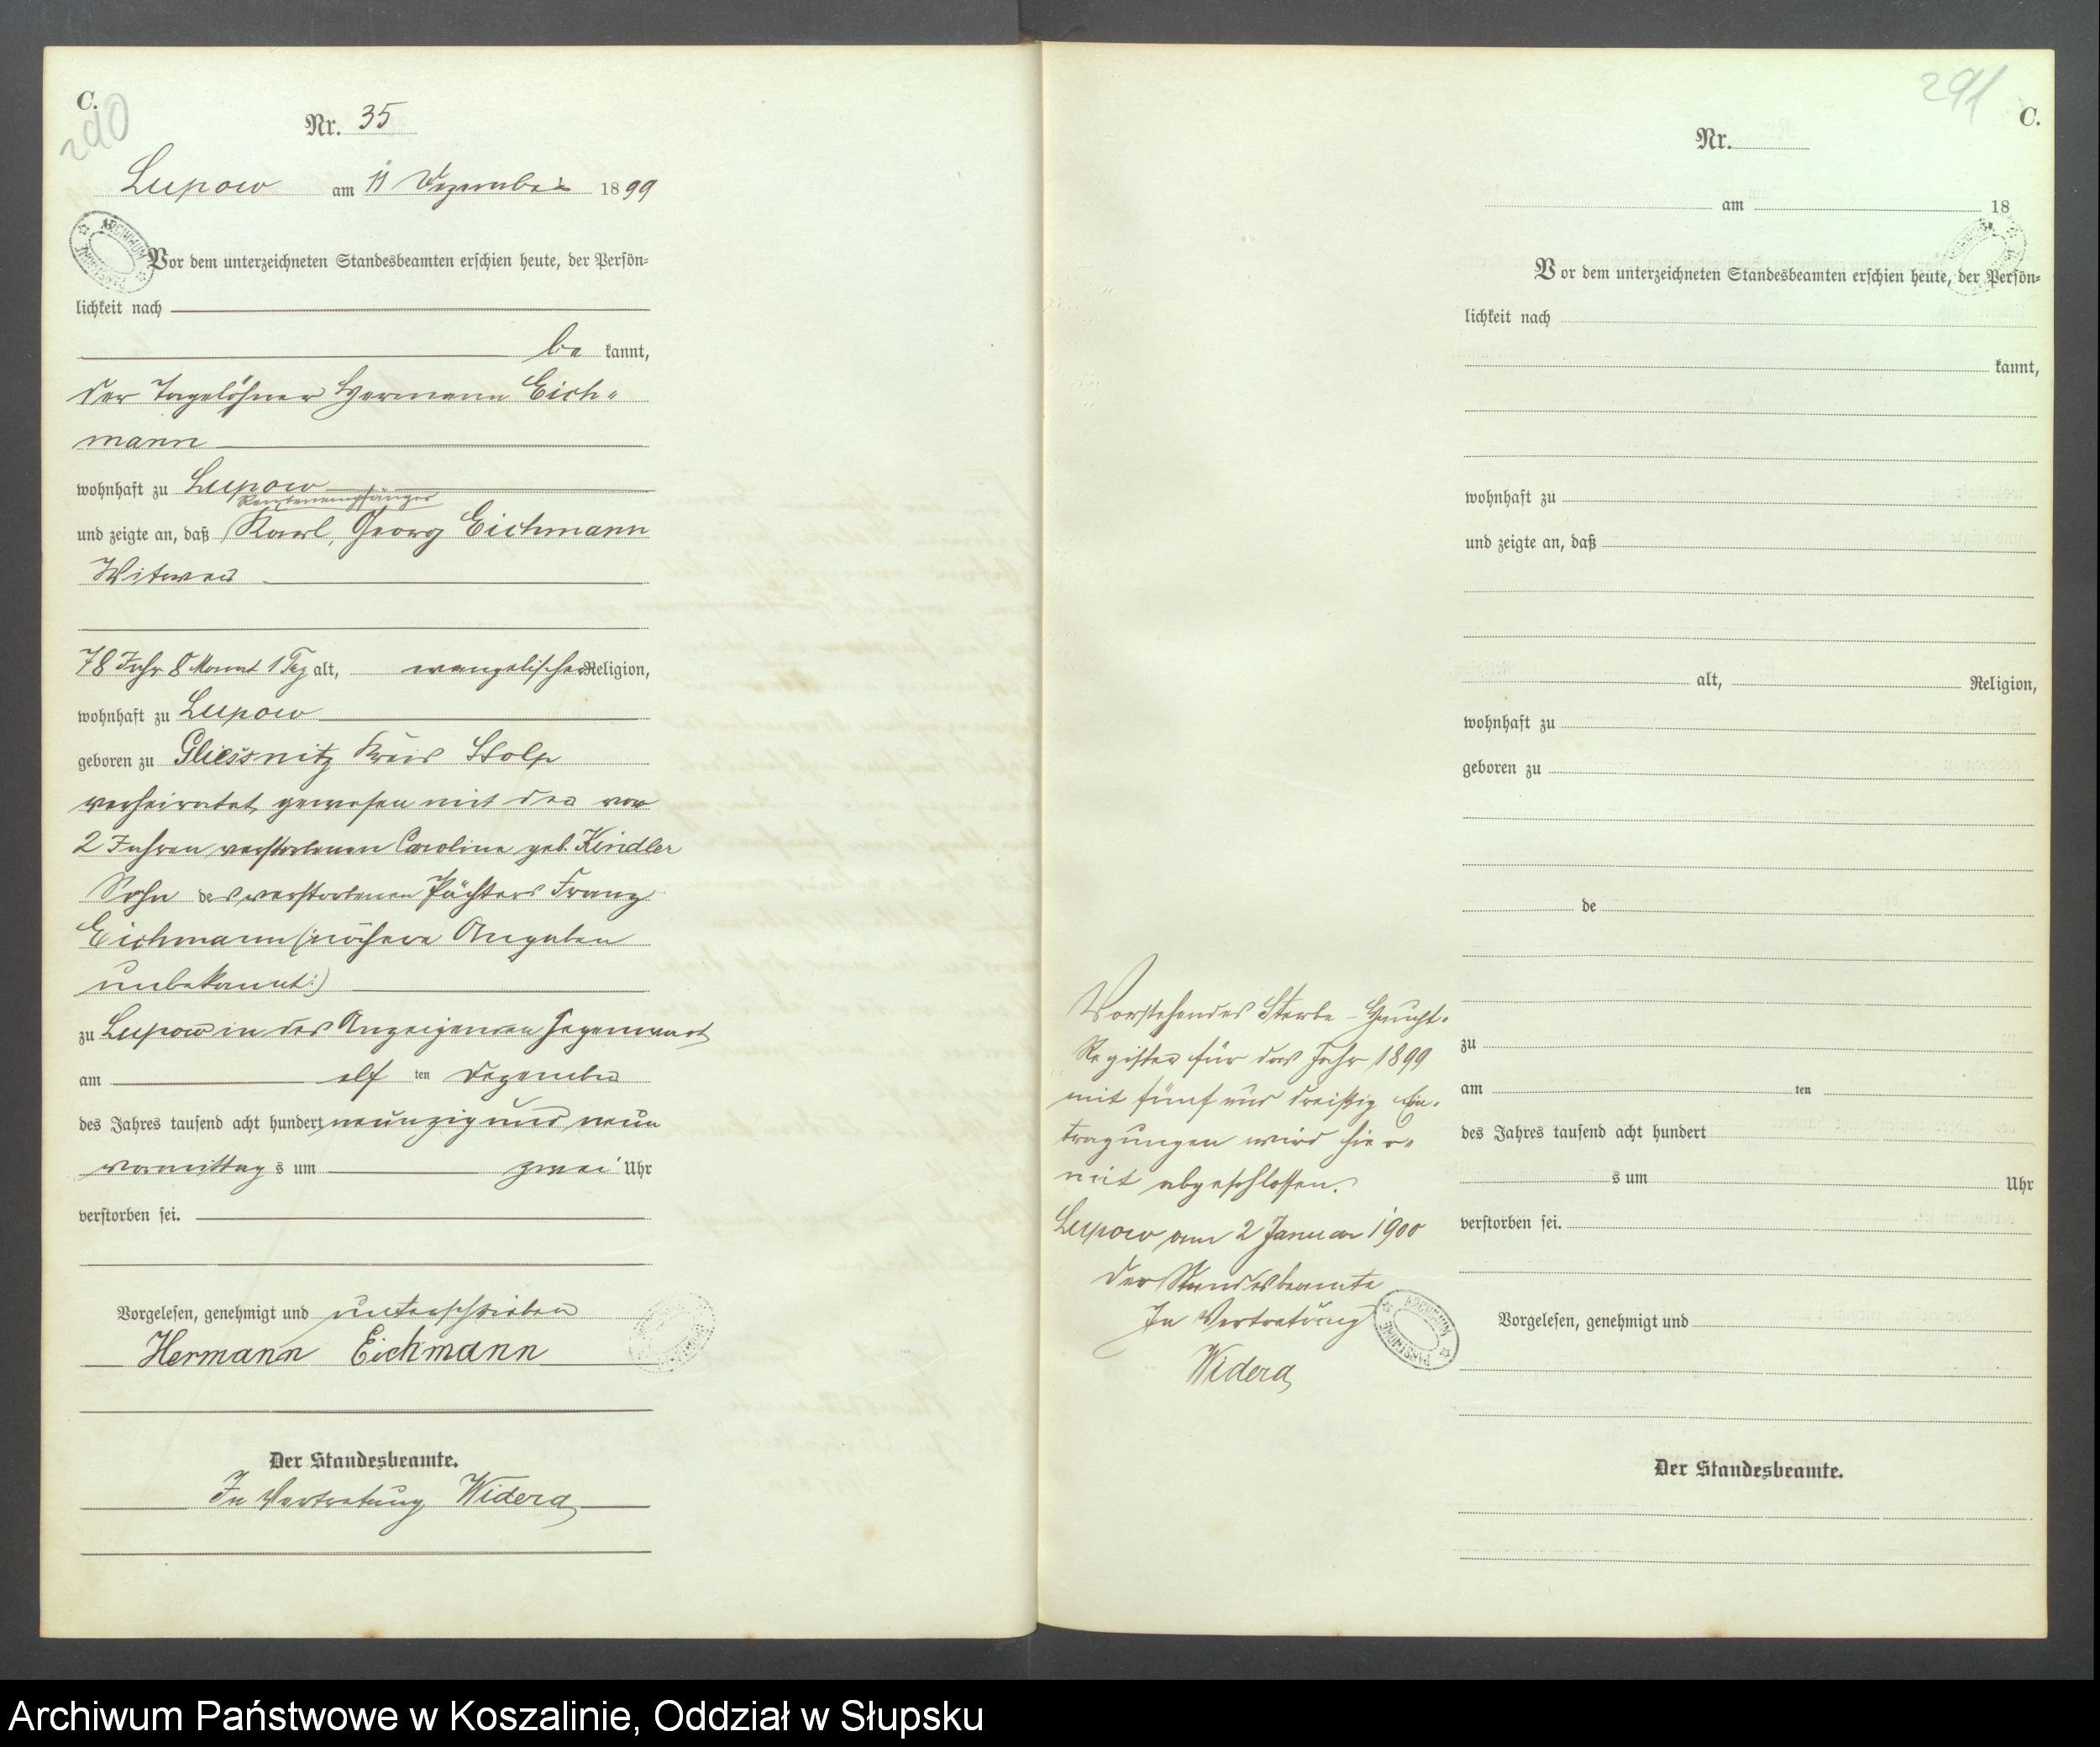 C.
290
Nr. 35
Lupow am 11 Dezember 1899
Vor dem unterzeichneten Standesbeamten erschien heute, der Persön-
lichkeit nach
be kannt,
der Tagelöhner Hermann Eich-
mann
wohnhaft zu Lupow
Rentenempfänger
und zeigte an, daß Karl, Georg Eichmann
Witwer
78 Jahr 8 Monat 1 Tag alt, evangelischer Religion,
wohnhaft zu Lupow
geboren zu Gliessnitz Kreis Stolp
verheiratet gewesen mit der vor
2 Jahren verstorbenen Caroline geb. Kindler
Sohn des verstorbenen Pächters Franz
Eichmann (:nähere Angaben
unbekannt:)
zu Lupow in des Anzeigenden Gegenwart
am elf ten Dezember
des Jahres tausend acht hundert neunzig und neun
vormittag s um zwei Uhr
verstorben sei.
Vorgelesen, genehmigt und unterschrieben
Hermann Eichmann
Der Standesbeamte.
In Vertretung Widera
Vorstehendes Sterbe-Haupt-
Register für das Jahr 1899
mit fünf und dreißig Ein-
tragungen wird hier-
mit abgeschlossen.
Lupow am 2 Januar 1900
Der Standesbeamte
In Vertretung
Widera
291
C.
Nr.
am 18
Vor dem unterzeichneten Standesbeamten erschien heute, der Persön-
lichkeit nach
kannt,
wohnhaft zu
und zeigte an, daß
alt, Religion,
wohnhaft zu
geboren zu
de
zu
am ten
des Jahres tausend acht hundert
s um Uhr
verstorben sei.
Vorgelesen, genehmigt und
Der Standesbeamte.
Archiwum Państwowe w Koszalinie, Oddział w Słupsku